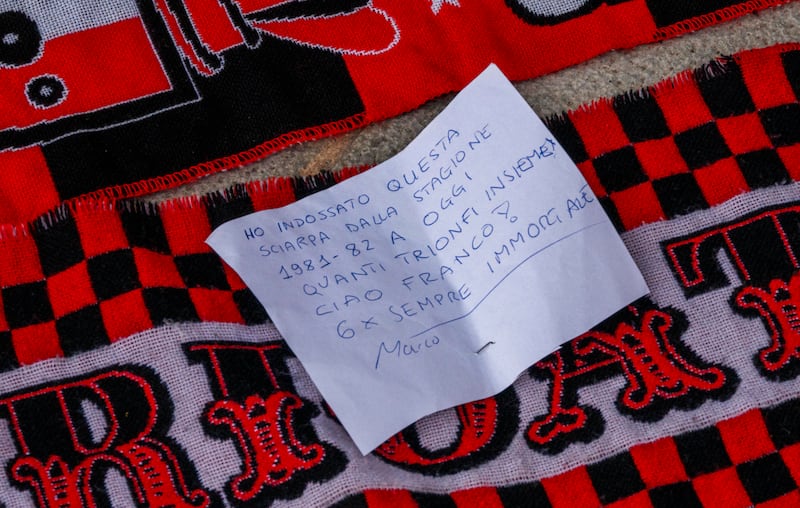 HO INDOSSATO QUESTA
SCIARPA DALLA STAGIONE
1981-82 A OGGI
QUANTI TRIONFI INSIEME
CIAO FRANCO
6 x SEMPRE IMMORTALE
Marco